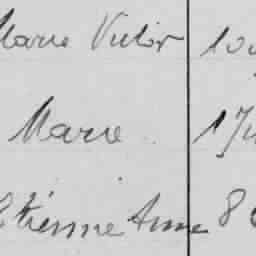 Marie Victor
Marie 1
Etienne Anne 8